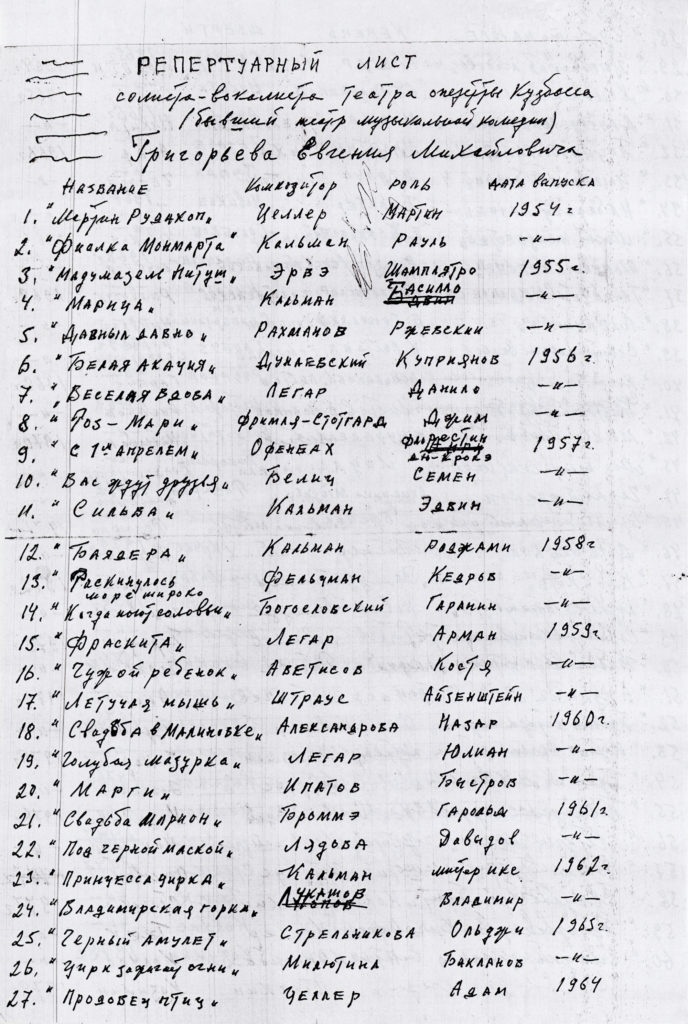 РЕПЕРТУАРНЫЙ ЛИСТ
солиста-вокалиста театра оперетты Кузбасса
(бывший театр музыкальной комедии)
Григорьева Евгения Михайловича
Название Композитор роль дата выпуска
1. "Мартин Рудокоп" Целлер Мартин 1954 г.
2. "Фиалка Монмарта" Кальман Рауль -"-
3. "Мадумазель Нитуш" Эрвэ Шамплатро 1955 г.
4. "Марица" Кальман Басилло -"-
5. "Давным давно" Рахманов Ржевский -"-
6. "Белая акация" Дунаевский Куприянов 1956 г.
7. "Веселая вдова" Легар Данило -"-
8. "Роз-Мари" Фримля-Стотгард Джим -"-
9. "С 1м апрелем" Офенбах Флорестин ан-Крокэ 1957 г.
10. "Вас ждут друзья" Белиц Семен -"-
11. "Сильва" Кальман Эдвин -"-
12. "Баядера" Кальман Раджами 1958 г.
13. "Раскинулось море широко" Фельцман Кедров -"-
14. "Когда поют соловьи" Богословский Гаранин -"-
15. "Фраскита" Легар Арман 1959 г.
16. "Чужой ребенок" Аветисов Костя -"-
17. "Летучая мышь" Штраус Айзенштейн -"-
18. "Свадьба в Малиновке" Александрова Назар 1960 г.
19. "Голубая мазурка" Легар Юлиан -"-
20. "Марги" Ипатов Быстров -"-
21. "Свадьба Марион" Броммэ Гарольд 1961 г.
22. "Под черной маской" Лядова Давыдов -"-
23. "Принцесса цирка" Кальман мистер икс 1962 г.
24. "Владимирская горка" Лукашов Владимир -"-
25. "Черный амулет" Стрельникова Ольджи 1965 г.
26. "Цирк зажигает огни" Милютина Бакланов -"-
27. "Продовец птиц" Целлер Адам 1964